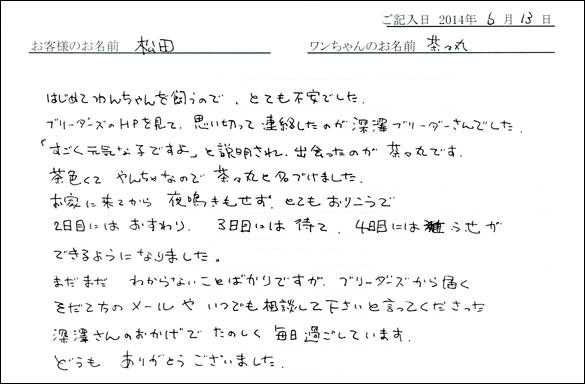 ご記入日 2014年 6月 13日
お客様のお名前 松田 ワンちゃんのお名前 茶々丸
はじめてわんちゃんを飼うので、とても不安でした。
ブリーダーズのHPを見て、思い切って連絡したのが深澤ブリーダーさんでした。
「すごく元気な子ですよ」と説明され、出会ったのが茶々丸です。
茶色くてやんちゃなので茶々丸と名づけました。
お家に来てから夜鳴きもせず、とてもおりこうで
2日目にはおすわり、3日目には待て、4日目にはふせが
できるようになりました。
まだまだ わからないことばかりですが、ブリーダーズから届く
そだて方のメールやいつでも相談して下さいと言ってくださった
深澤さんのおかげでたのしく毎日過ごしています。
どうも ありがとうございました。